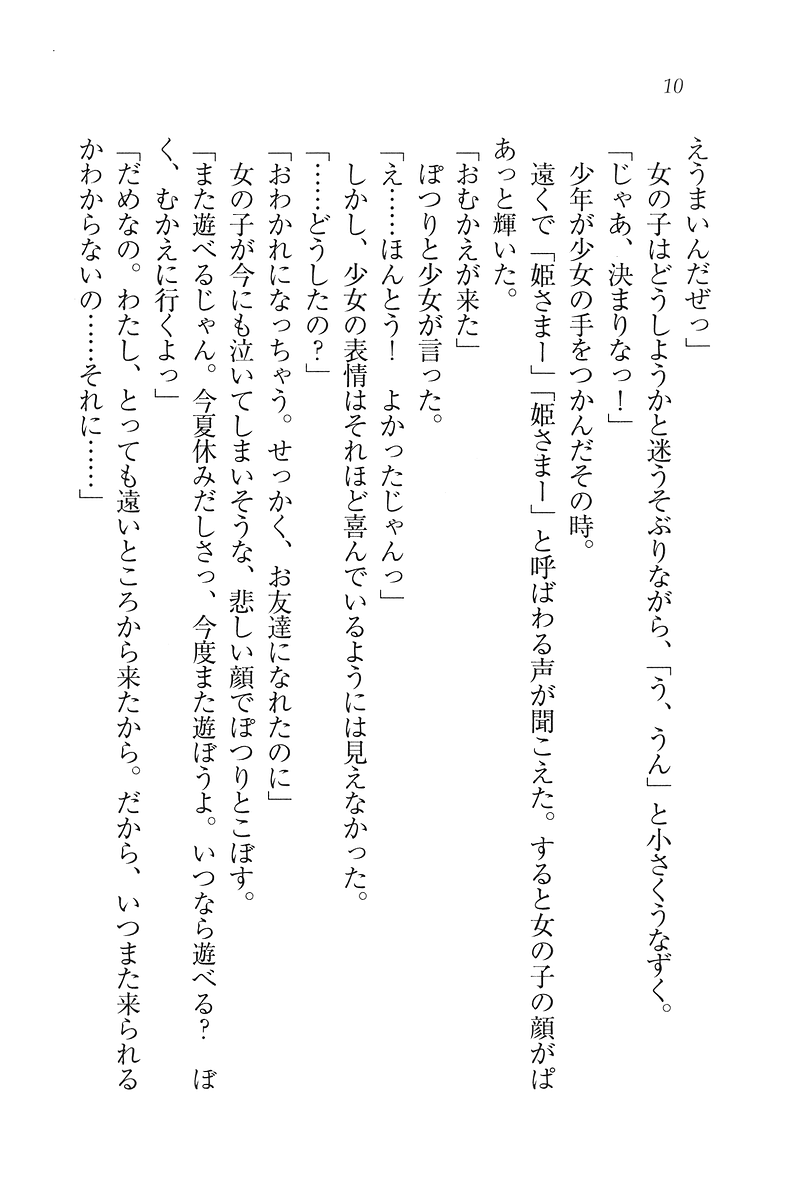 10
えうまいんだぜっ」
　女の子はどうしようかと迷うそぶりながら、「う、うん」と小さくうなずく。
「じゃあ、決まりなっ！」
　少年が少女の手をつかんだその時。
　遠くで「姫さまー」「姫さまー」と呼ばわる声が聞こえた。すると女の子の顔がぱ
あっと輝いた。
「おむかえが来た」
　ぽつりと少女が言った。
「え……ほんとう！　よかったじゃんっ」
　しかし、少女の表情はそれほど喜んでいるようには見えなかった。
「……どうしたの？」
「おわかれになっちゃう。せっかく、お友達になれたのに」
　女の子が今にも泣いてしまいそうな、悲しい顔でぽつりとこぼす。
「また遊べるじゃん。今夏休みだしさっ、今度また遊ぼうよ。いつなら遊べる？　ぼ
く、むかえに行くよっ」
「だめなの。わたし、とっても遠いところから来たから。だから、いつまた来られる
かわからないの……それに……」